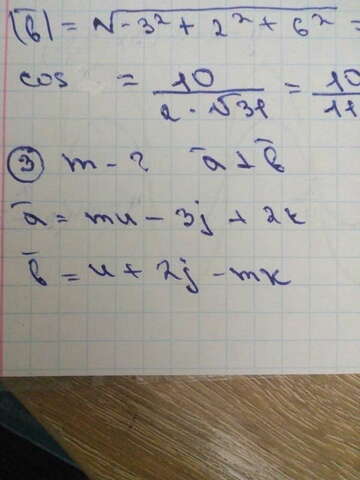 |b̅| = √-3² + 2² + 6² =
cos = 10 / 2 · √31 = 10 / 11
③ m - ? a̅ ⊥ b̅
a̅ = mи - 3j + 2к
b̅ = и + 2j - mк